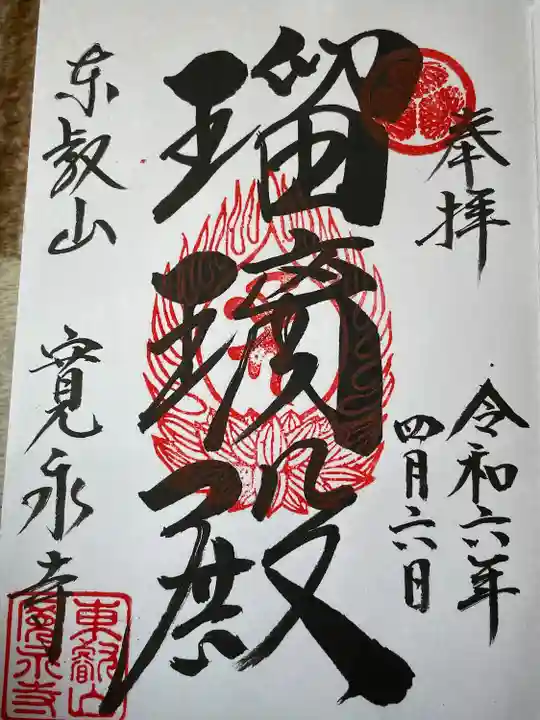 奉拝
令和六年
四月六日
瑠璃殿
东叡山 寛永寺
東叡山
寛永寺